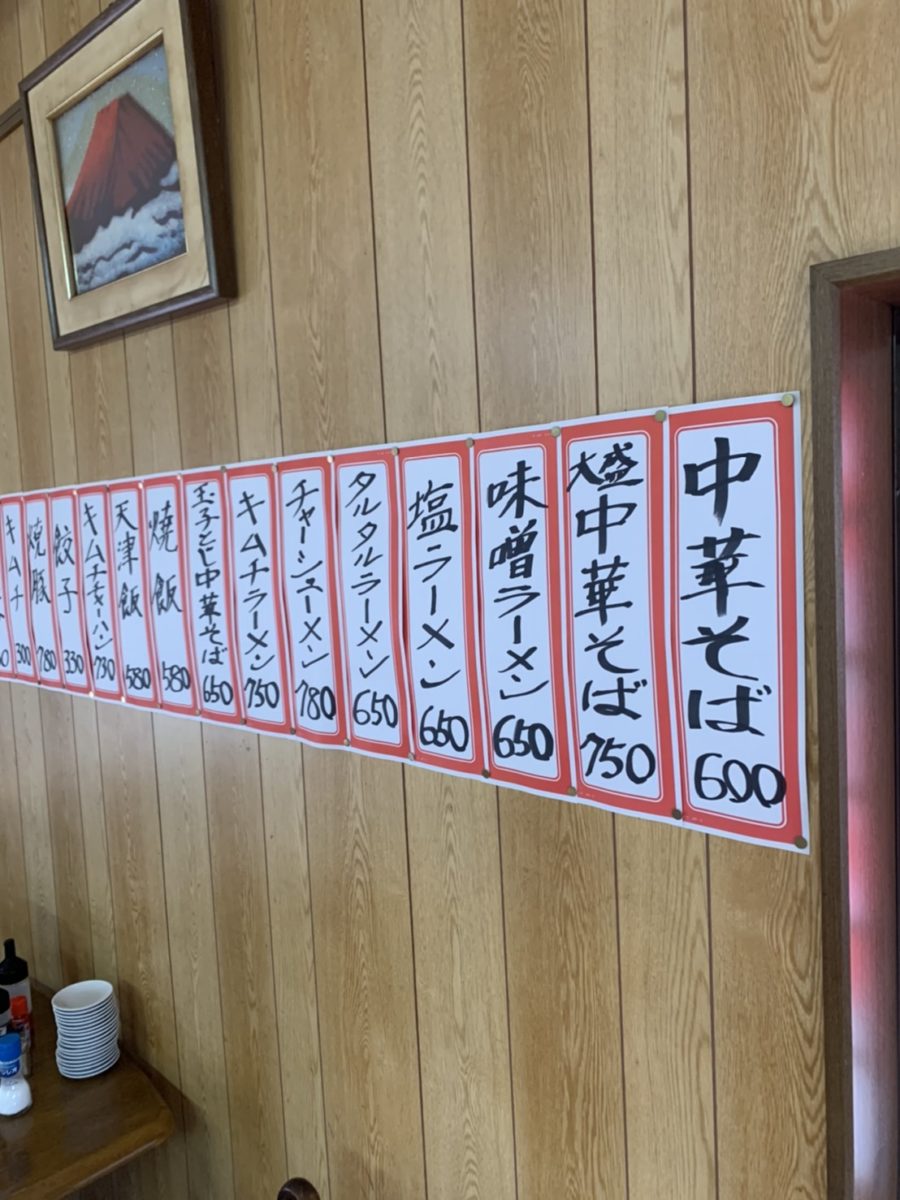 中華そば 600
大盛中華そば 750
味噌ラーメン 650
塩ラーメン 650
タルタルラーメン 650
チャーシューメン 780
キムチラーメン 750
玉子とじ中華そば 650
焼飯 580
天津飯 580
キムチチャーハン 730
餃子 330
焼豚 780
キムチ 300